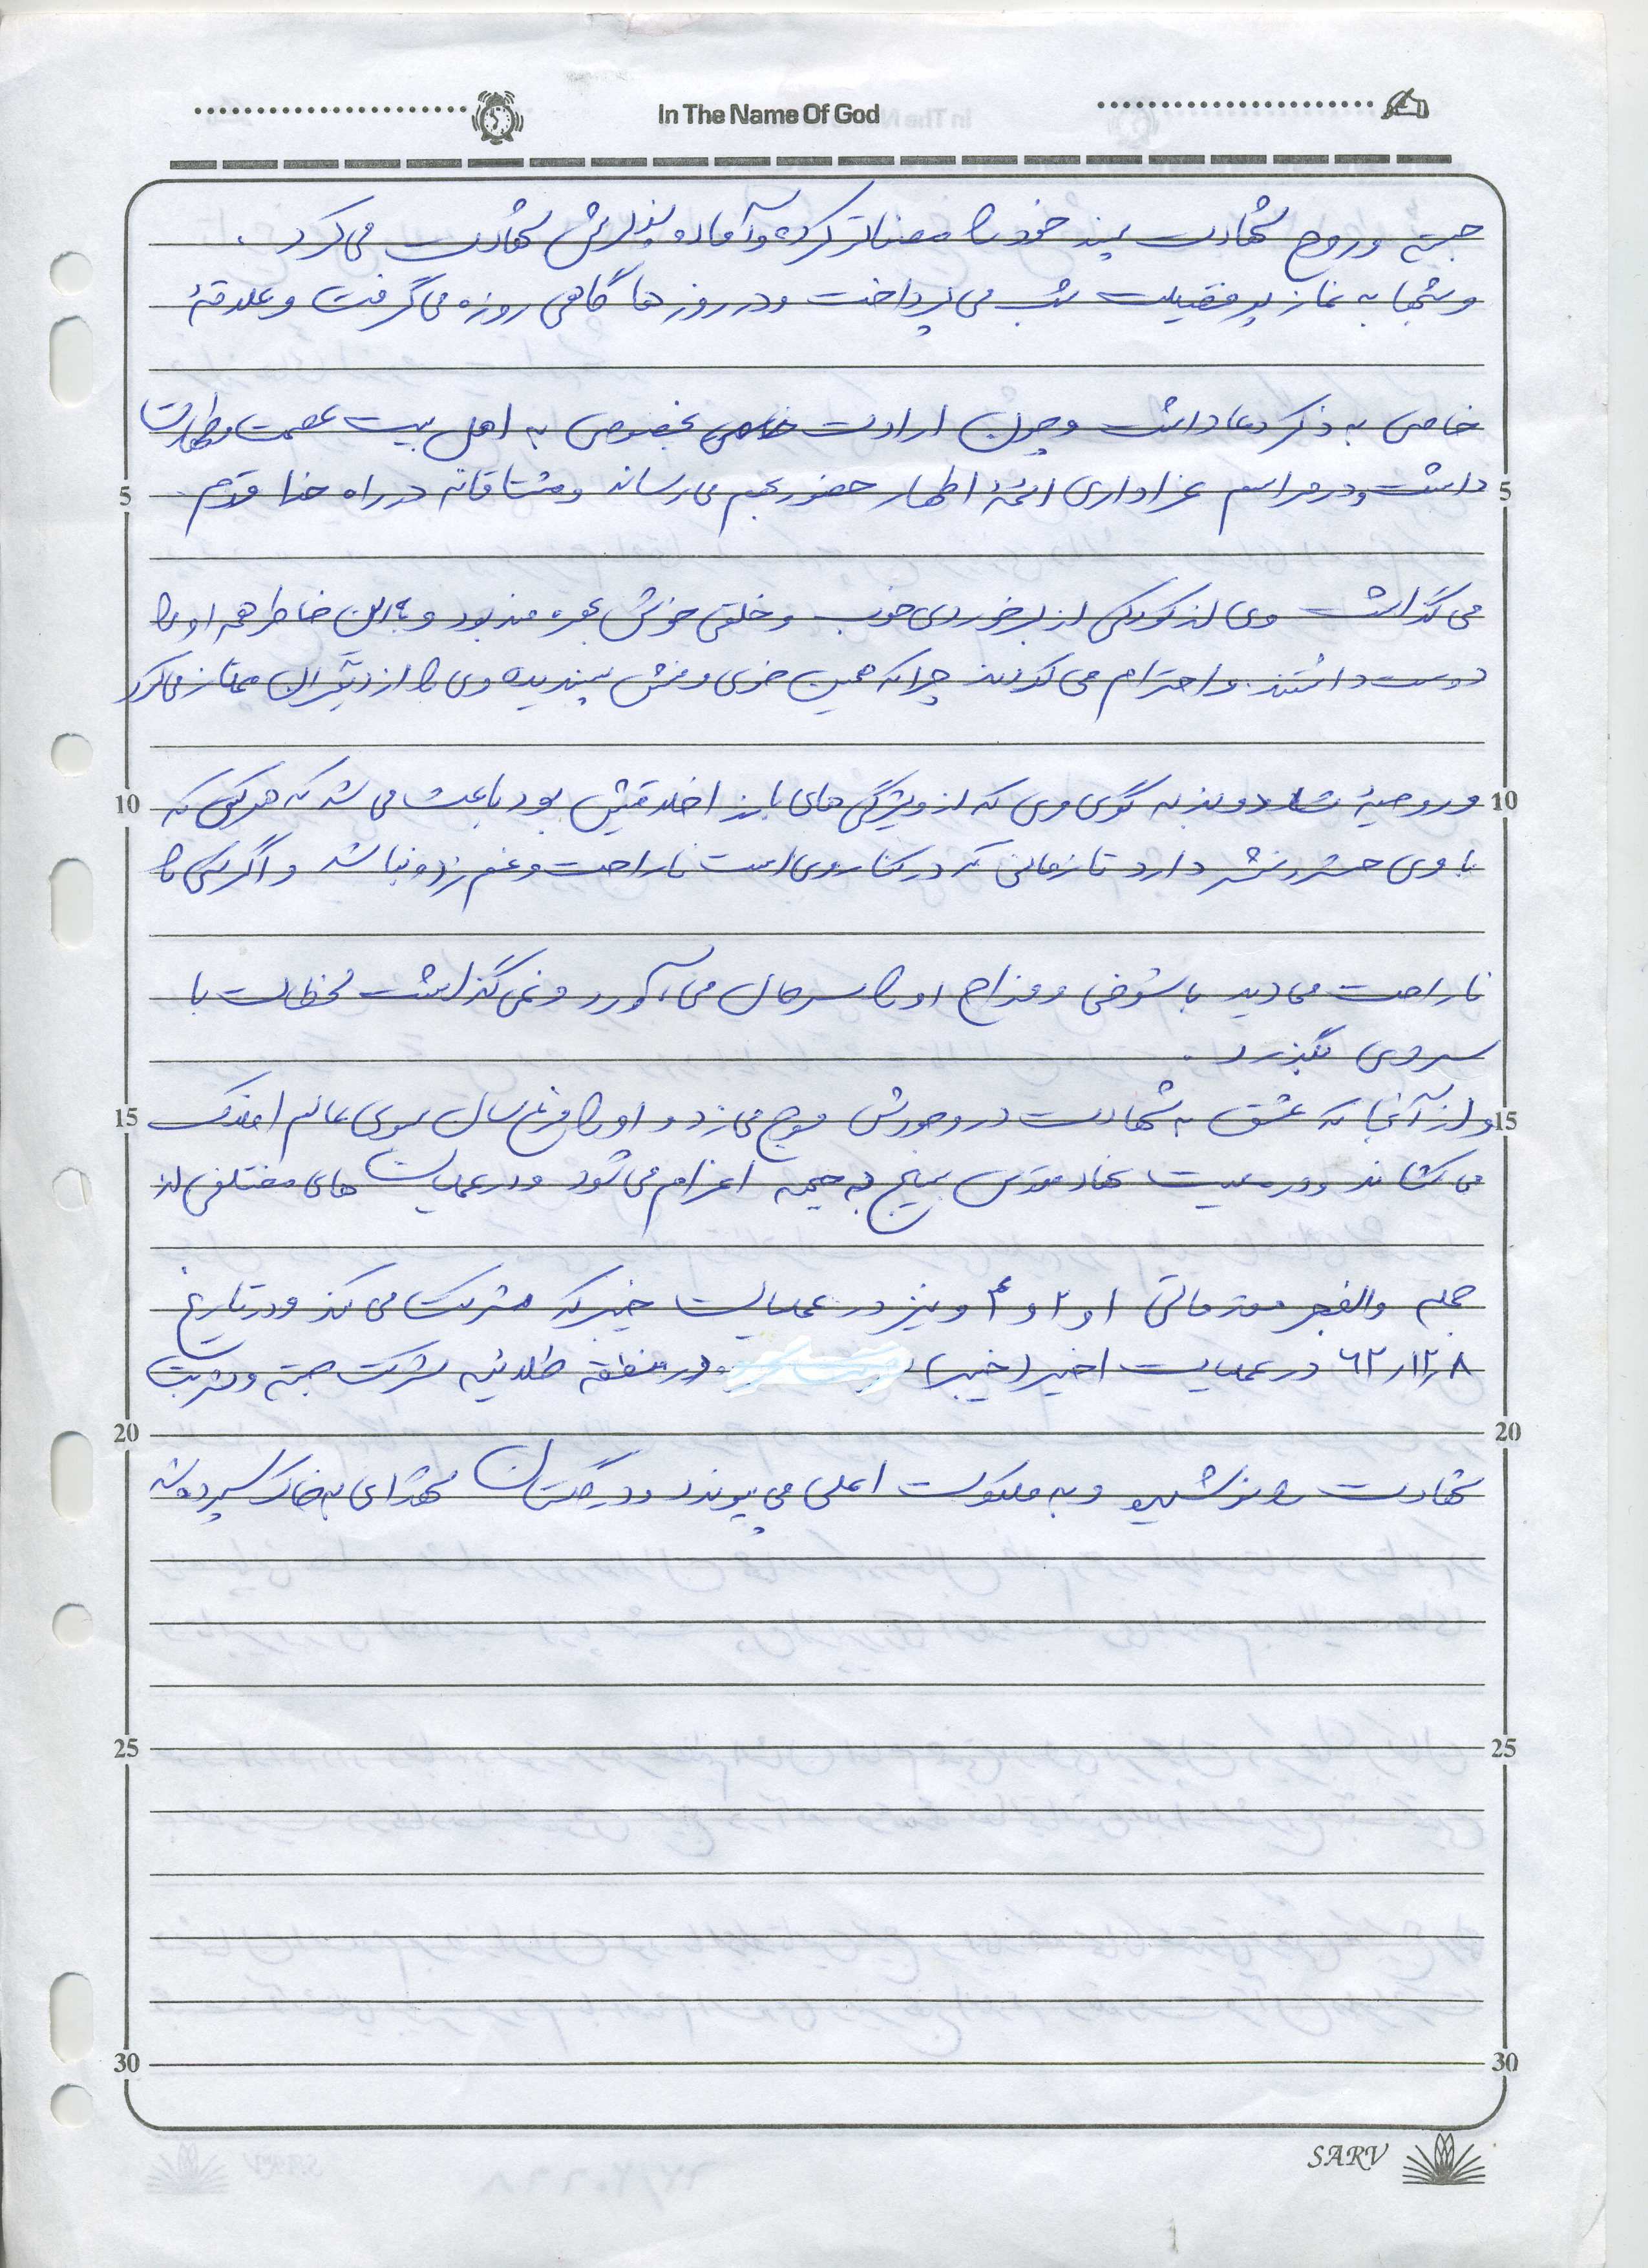 In The Name Of God
جسته و روح شهادت پسند خود را مصفاتر کرده و آماده پذیرش شهادت می کرد.
و شبها به نماز پر فضیلت شب می پرداخت و در روزها گاهی روزه می گرفت و علاقهٔ
خاصی به ذکر دعا داشت و چون ارادت خاصی بخصوص به اهل بیت عصمت و طهارت
5 داشت و در مراسم عزاداری ائمهٔ اطهار حضور بهم می رساند و مشتاقانه در راه خدا قدم 5
می گذاشت وی از کودکی از برخوردی خوب و خلقی خوش بهره مند بود و به این خاطر همه او را
دوست داشتند و احترام می کردند چرا که همین خوی و منش پسندیده وی را از دیگران ممتاز می کرد
10 و روحیهٔ شاد و بذله گوی وی که از ویژگی های بارز اخلاقیش بود باعث می شد که هر کس که 10
با وی حشر و نشر دارد تا زمانی که در کنار وی است ناراحت و غم زده نباشد و اگر کسی را
ناراحت می دید با شوخی و مزاح او را سر حال می آورد و نمی گذاشت لحظات با
سروی بگذرد.
15 و از آنجا که عشق به شهادت در وجودش موج می زد و او را مرغ سان بسوی عالم افلاک 15
می کشاند و در معیت نهاد مقدس بسیج به جبهه اعزام می شود و در عملیات های مختلفی از
جمله والفجر مقدماتی ۱ و ۲ و ۴ و نیز در عملیات خیبر که شرکت می کند و در تاریخ
۶۲٫۱۲٫۸ در عملیات اخیر (خیبر) در منطقه طلائیه شرکت جسته و شربت
20 20
شهادت را نوشیده و به ملکوت اعلی می پیوندد و در گلستان شهدای به خاک سپرده شد
25 25
30 30
SARV